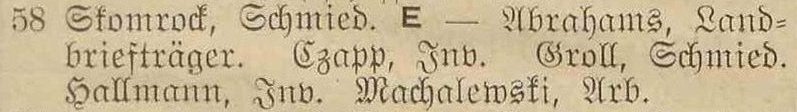 58 Skomrock, Schmied. E — Abrahams, Land-
briefträger. Czapp, Inv. Groll, Schmied.
Hallmann, Inv. Machalewski, Arb.